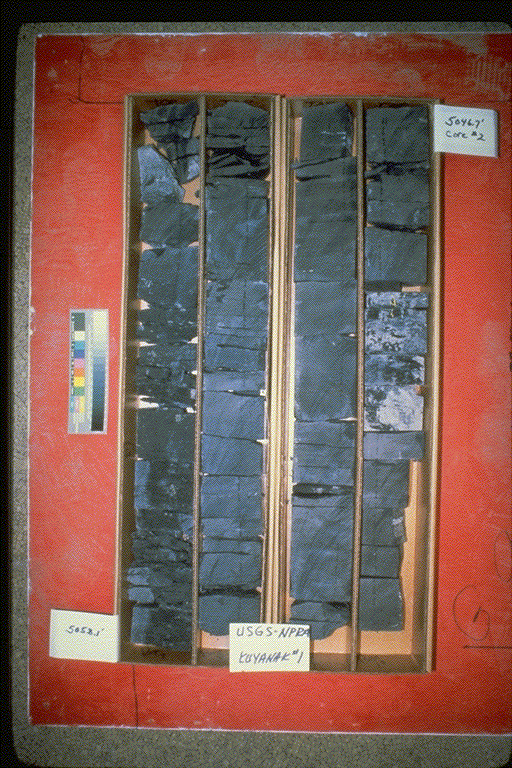 5046.7'
Core #2
USGS-NPRA
KUYANAK #1